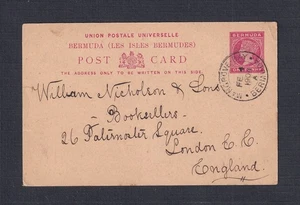 UNION POSTALE UNIVERSELLE
BERMUDA (LES ISLES BERMUDES)
POST CARD
THE ADDRESS ONLY TO BE WRITTEN ON THIS SIDE
BERMUDA
William Nicholson & Sons
Booksellers
26 Paternoster Square,
London E. C.
England.